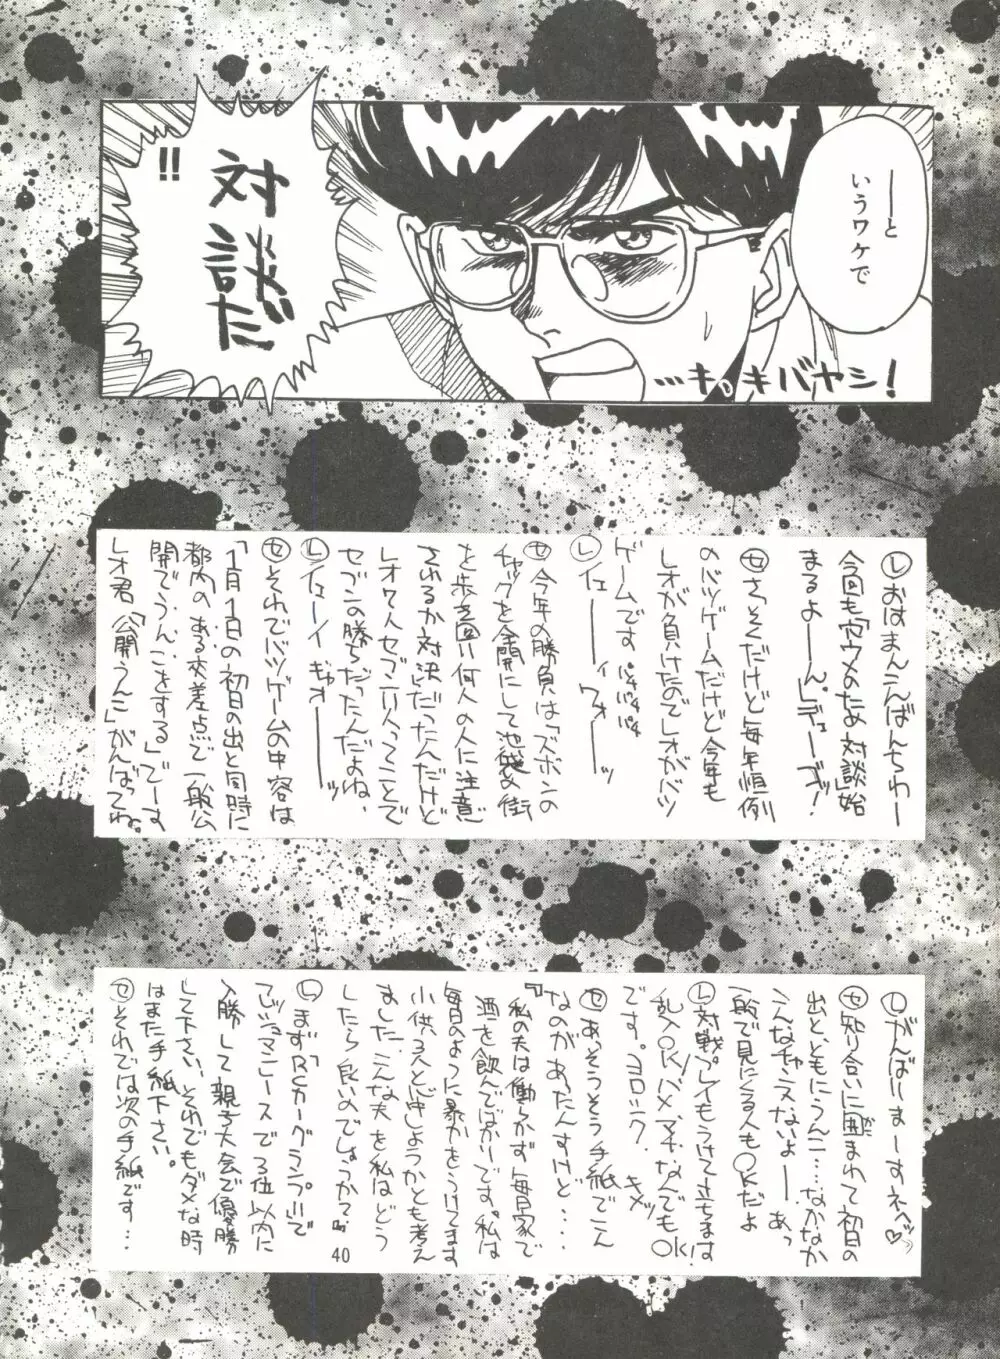 ーと
いうワケで
対
談
だ
!!
…キ、キバヤシ!
Ⓛおはまんこんばんちわー
今回も「穴ウメのため対談」始
まるよーーん。デューーゴ!
㋝さっそくだけど毎年恒例
のバツゲームだけど今年も
レオが負けたのでレオがバツ
ゲームです パチパチパチ
Ⓛイェーーーィ ワォーーッ
㋝今年の勝負は「ズボンの
チャックを全開にして池袋の街
を歩き回り何人の人に注意
されるか対決」だったんだけど
レオ7人セブン11人ってことで
セブンの勝ちだったんだよね、
Ⓛイェーーイ ギャオーーーッ
㋝それでバツゲームの内容は
「1月1日の初日の出と同時に
都内のある交差点で一般公
開でうんこをする」でーす
レオ君「公開うんこ」がんばってね。
Ⓛがんばりまーすネヘッ♡
㋝知り合いに囲まれて初日の
出とともにうんこ…なかなか
こんなチャンスないよーーあっ
一般で見にくる人も○Kだよ
Ⓛ対戦プレイもうけて立ちます
乱入○K!ハメ、マチ、なんでも○K!
です。ヨロシク? キメッ
㋝あ、そうそう手紙でこん
なのがあったんすけど…
『私の夫は働らかず毎日家で
酒を飲んでばかりです。私は
毎日のように暴力をうけてます
小供3人と心中しようかとも考え
ました。こんな夫を私はどう
したら良いのでしょうか?』
Ⓛまず「RCカーグランプリ」で
3位以内に
入勝して親子大会で優勝
して下さい、それでもダメな時
はまた手紙下さい。
㋝それでは次の手紙です…
40